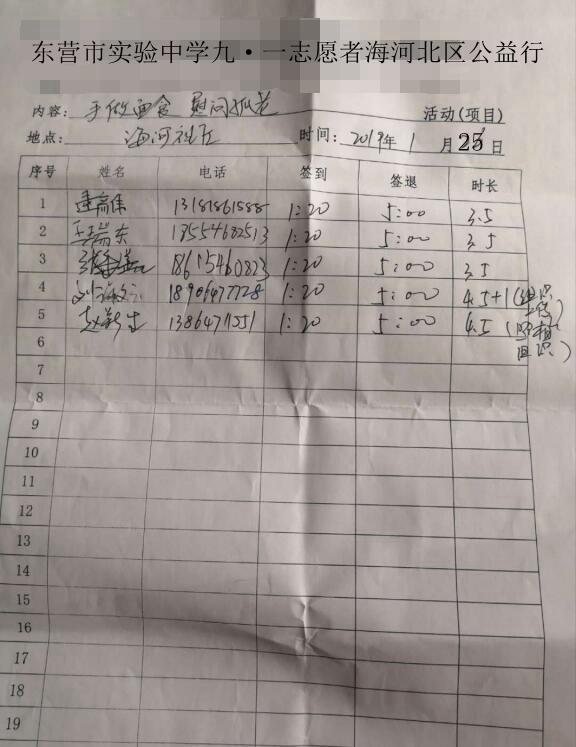 东营市实验中学九·一志愿者海河北区公益行
内容：手做面食 慰问孤老 活动（项目）
地点：海河社区 时间：2019年1月25日
序号 姓名 电话 签到 签退 时长
1 13181861888 1:20 5:00 3.5
2 王瑞东 17554682513 1:20 5:00 3.5
3 18615460823 1:20 5:00 3.5
4 18906477728 1:20 5:00 4.5+1（组织
5 赵新生 13864771551 1:20 5:00 4.5（照相
组织）
6
7
8
9
10
11
12
13
14
15
16
17
18
19